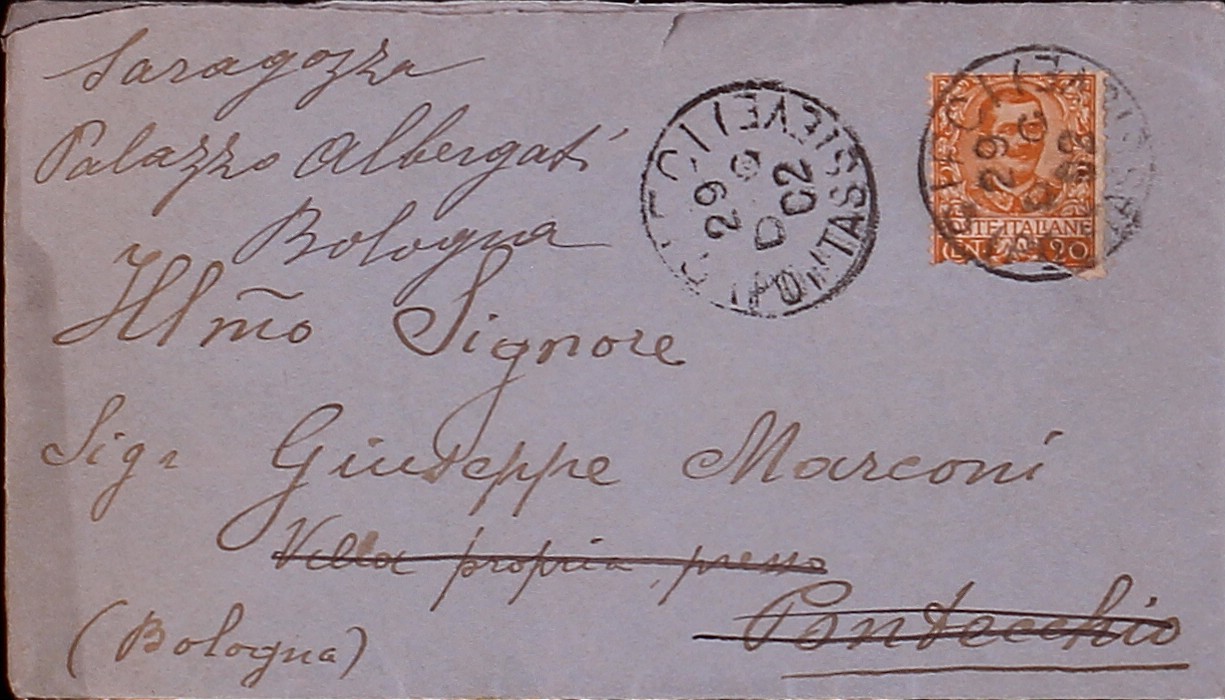 Saragozza
Palazzo Albergati
Bologna
Illm̃o Signore
Sigr Giuseppe Marconi
Villa propria, presso
Pontecchio
(Bologna)
PONTASSIEVE
29
C2
29
POSTE ITALIANE
20